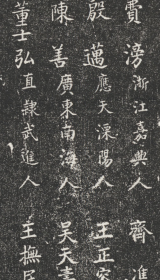 費滂浙江嘉興人 齊準
殷邁應天溧陽人 王正容
陳善廣東南海人 吳天壽
董士弘直隸武進人 王撫民